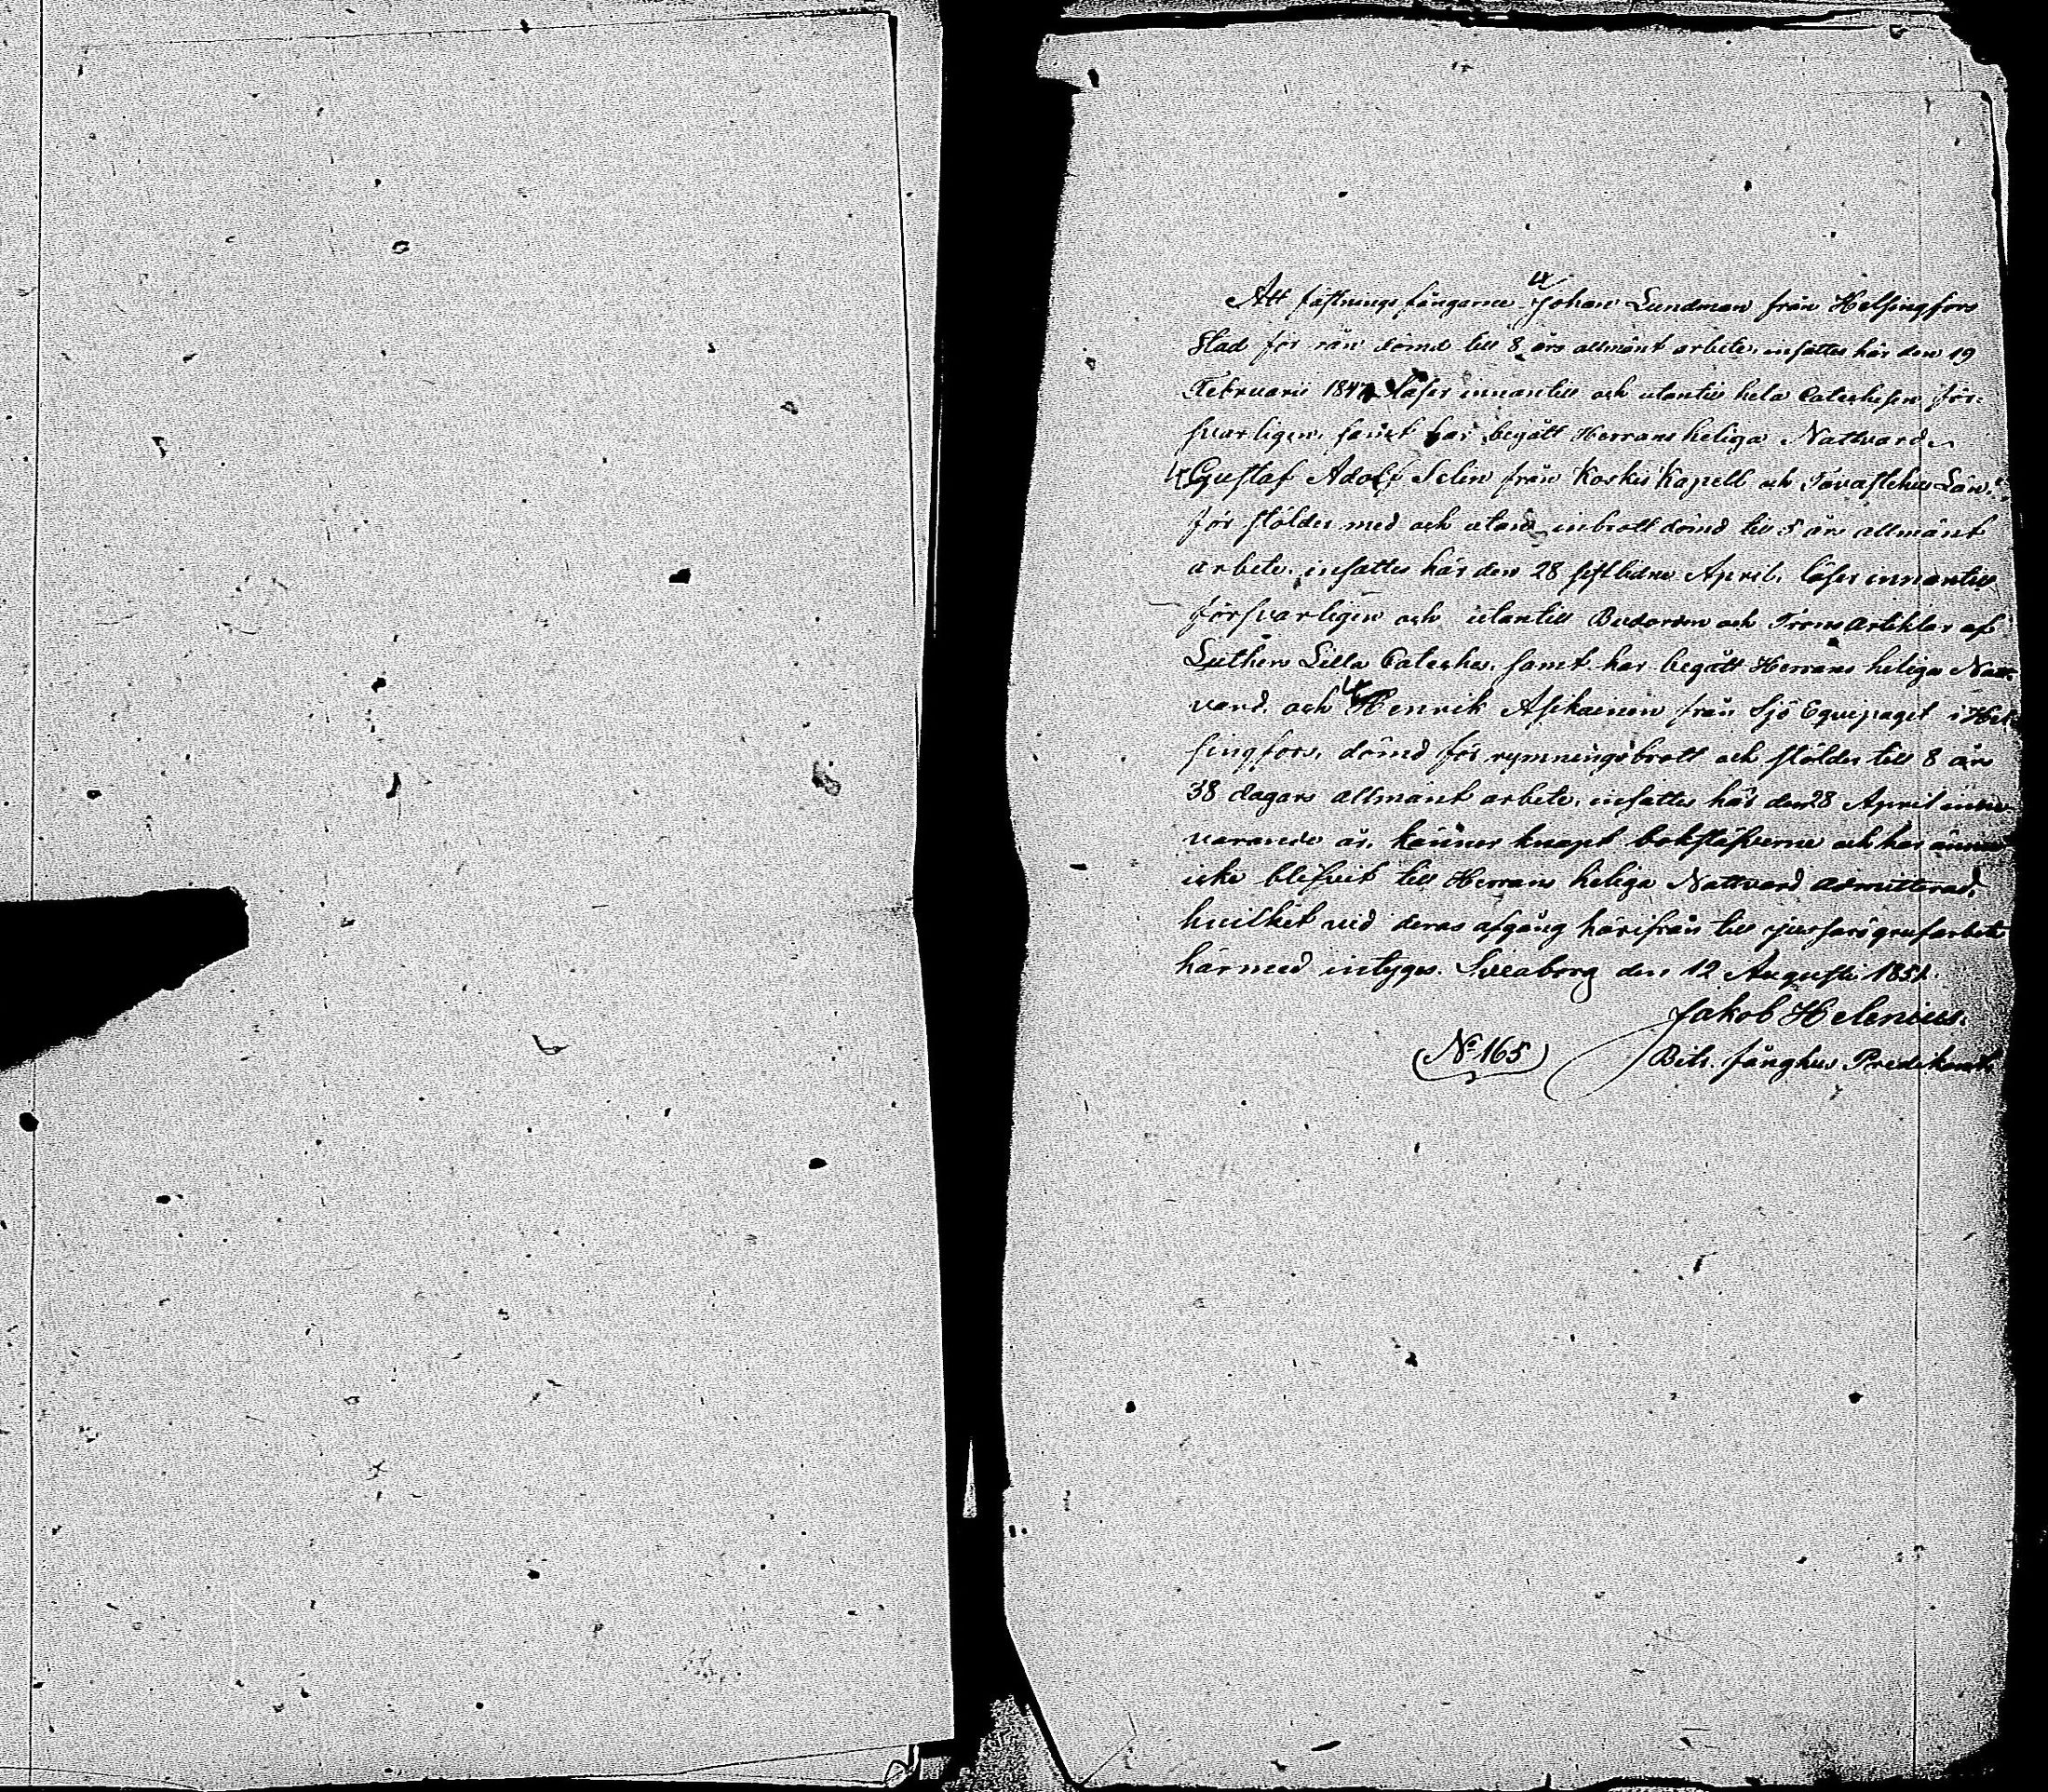 Att fästnings fångarne Johan Lundman från Helsingfors
Stad för rån dömd till 8 års allmänt arbete, insattes här den 19
Februarii 184 läser innantill och utantill hela Catechesen för-
svarligen, samt har begått Herrans heliga Nattvard
Gustaf Adolf Selin från Koskis Kapell och Tavastehus Län,
för stölder med och utan inbrott dömd till 5 års allmänt
arbete, insattes här den 28 sistledne April, läser innantill
försvarligen och utantill Budorden och Trons Artiklar af
Luthers Lilla Cateches, samt har begått Herrans heliga Natt-
vard, och Henrik Asikainen från Sjö Equipaget i Hel-
singfors, dömd för rymningsbrott och stölder till 8 års
38 dagars allmänt arbete, insattes här den 28 April inne-
varande år, känner knapt bokstäfverne och har ännu
icke blifvit till Herrans heliga Nattvard admitterad,
hvilket vid deras afgång härifrån till jussarö grufarbete
härmed intyges. Sveaborg den 12 Augusti 1851.
Jakob Helenius.
(No 165) Bitr. fånghus Predikant